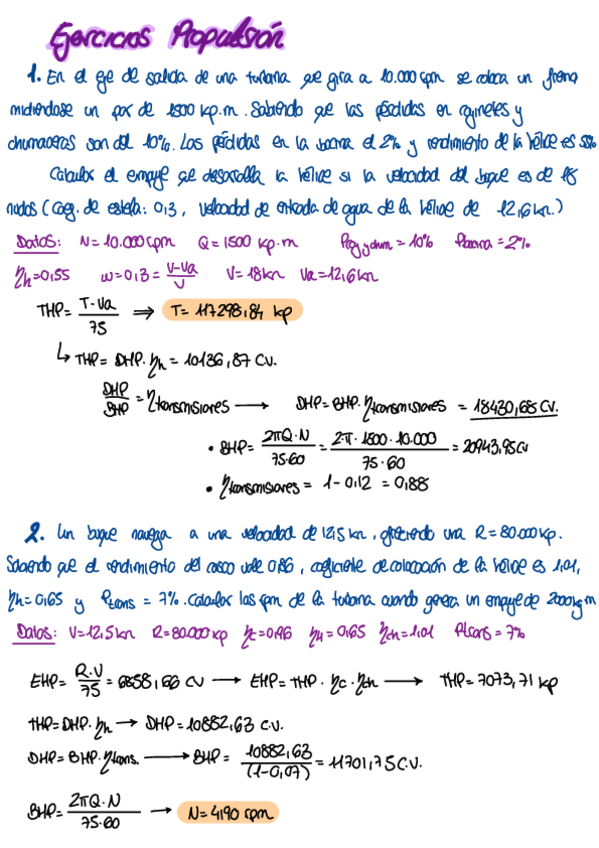 Ejercicios Propulsión
1. En el eje de salida de una turbina que gira a 10.000 rpm se coloca un freno
midiéndose un par de 1500 kp.m. Sabiendo que las pérdidas en quinetes y
chumaceras son del 10%. Las pérdidas en la bocina el 2% y rendimiento de la hélice es 55%
Calcular el empuje que desarrolla la hélice si la velocidad del buque es de 18
nudos (Coeg. de estela: 0,3, velocidad de entrada de agua de la hélice de 12,6 kn.)
Datos: N=10.000 rpm Q=1500 kp.m Pquy chum=10% Pbocina=2%
ηh=0,55 ω=0,3= V-Va/V V=18kn Va=12,6kn
THP= T·Va/75 ⇒ T= 117298,84 kp
↳ THP= DHP·ηh = 10136,87 C.V.
DHP/BHP = ηtransmisiones → DHP=BHP·ηtransmisiones = 18430,68 C.V.
• BHP= 2πQ·N/75·60 = 2·π·1500·10.000/75·60 = 20943,95 CV
• ηtransmisiones = 1-0,12 = 0,88
2. Un buque navega a una velocidad de 12,5 kn, ofreciendo una R=80.000 kp.
Sabiendo que el rendimiento del casco vale 0,96, coeficiente de colocación de la hélice es 1,01,
ηh=0,65 y Ptrans = 7%. Calcular las rpm de la turbina cuando genera un empuje de 2000 kg m
Datos: V=12,5 kn R=80.000 kp ηc=0,96 ηH=0,65 ηcn=1,01 Ptrans=7%
EHP= R·V/75 = 6858,66 CV → EHP=THP·ηc·ηcn → THP=7073,71 kp
THP=DHP·ηh → DHP=10882,63 C.V.
DHP=BHP·ηtrans. → BHP= 10882,63/(1-0,07) = 11701,75 C.V.
BHP= 2πQ·N/75·60 → N=4190 rpm